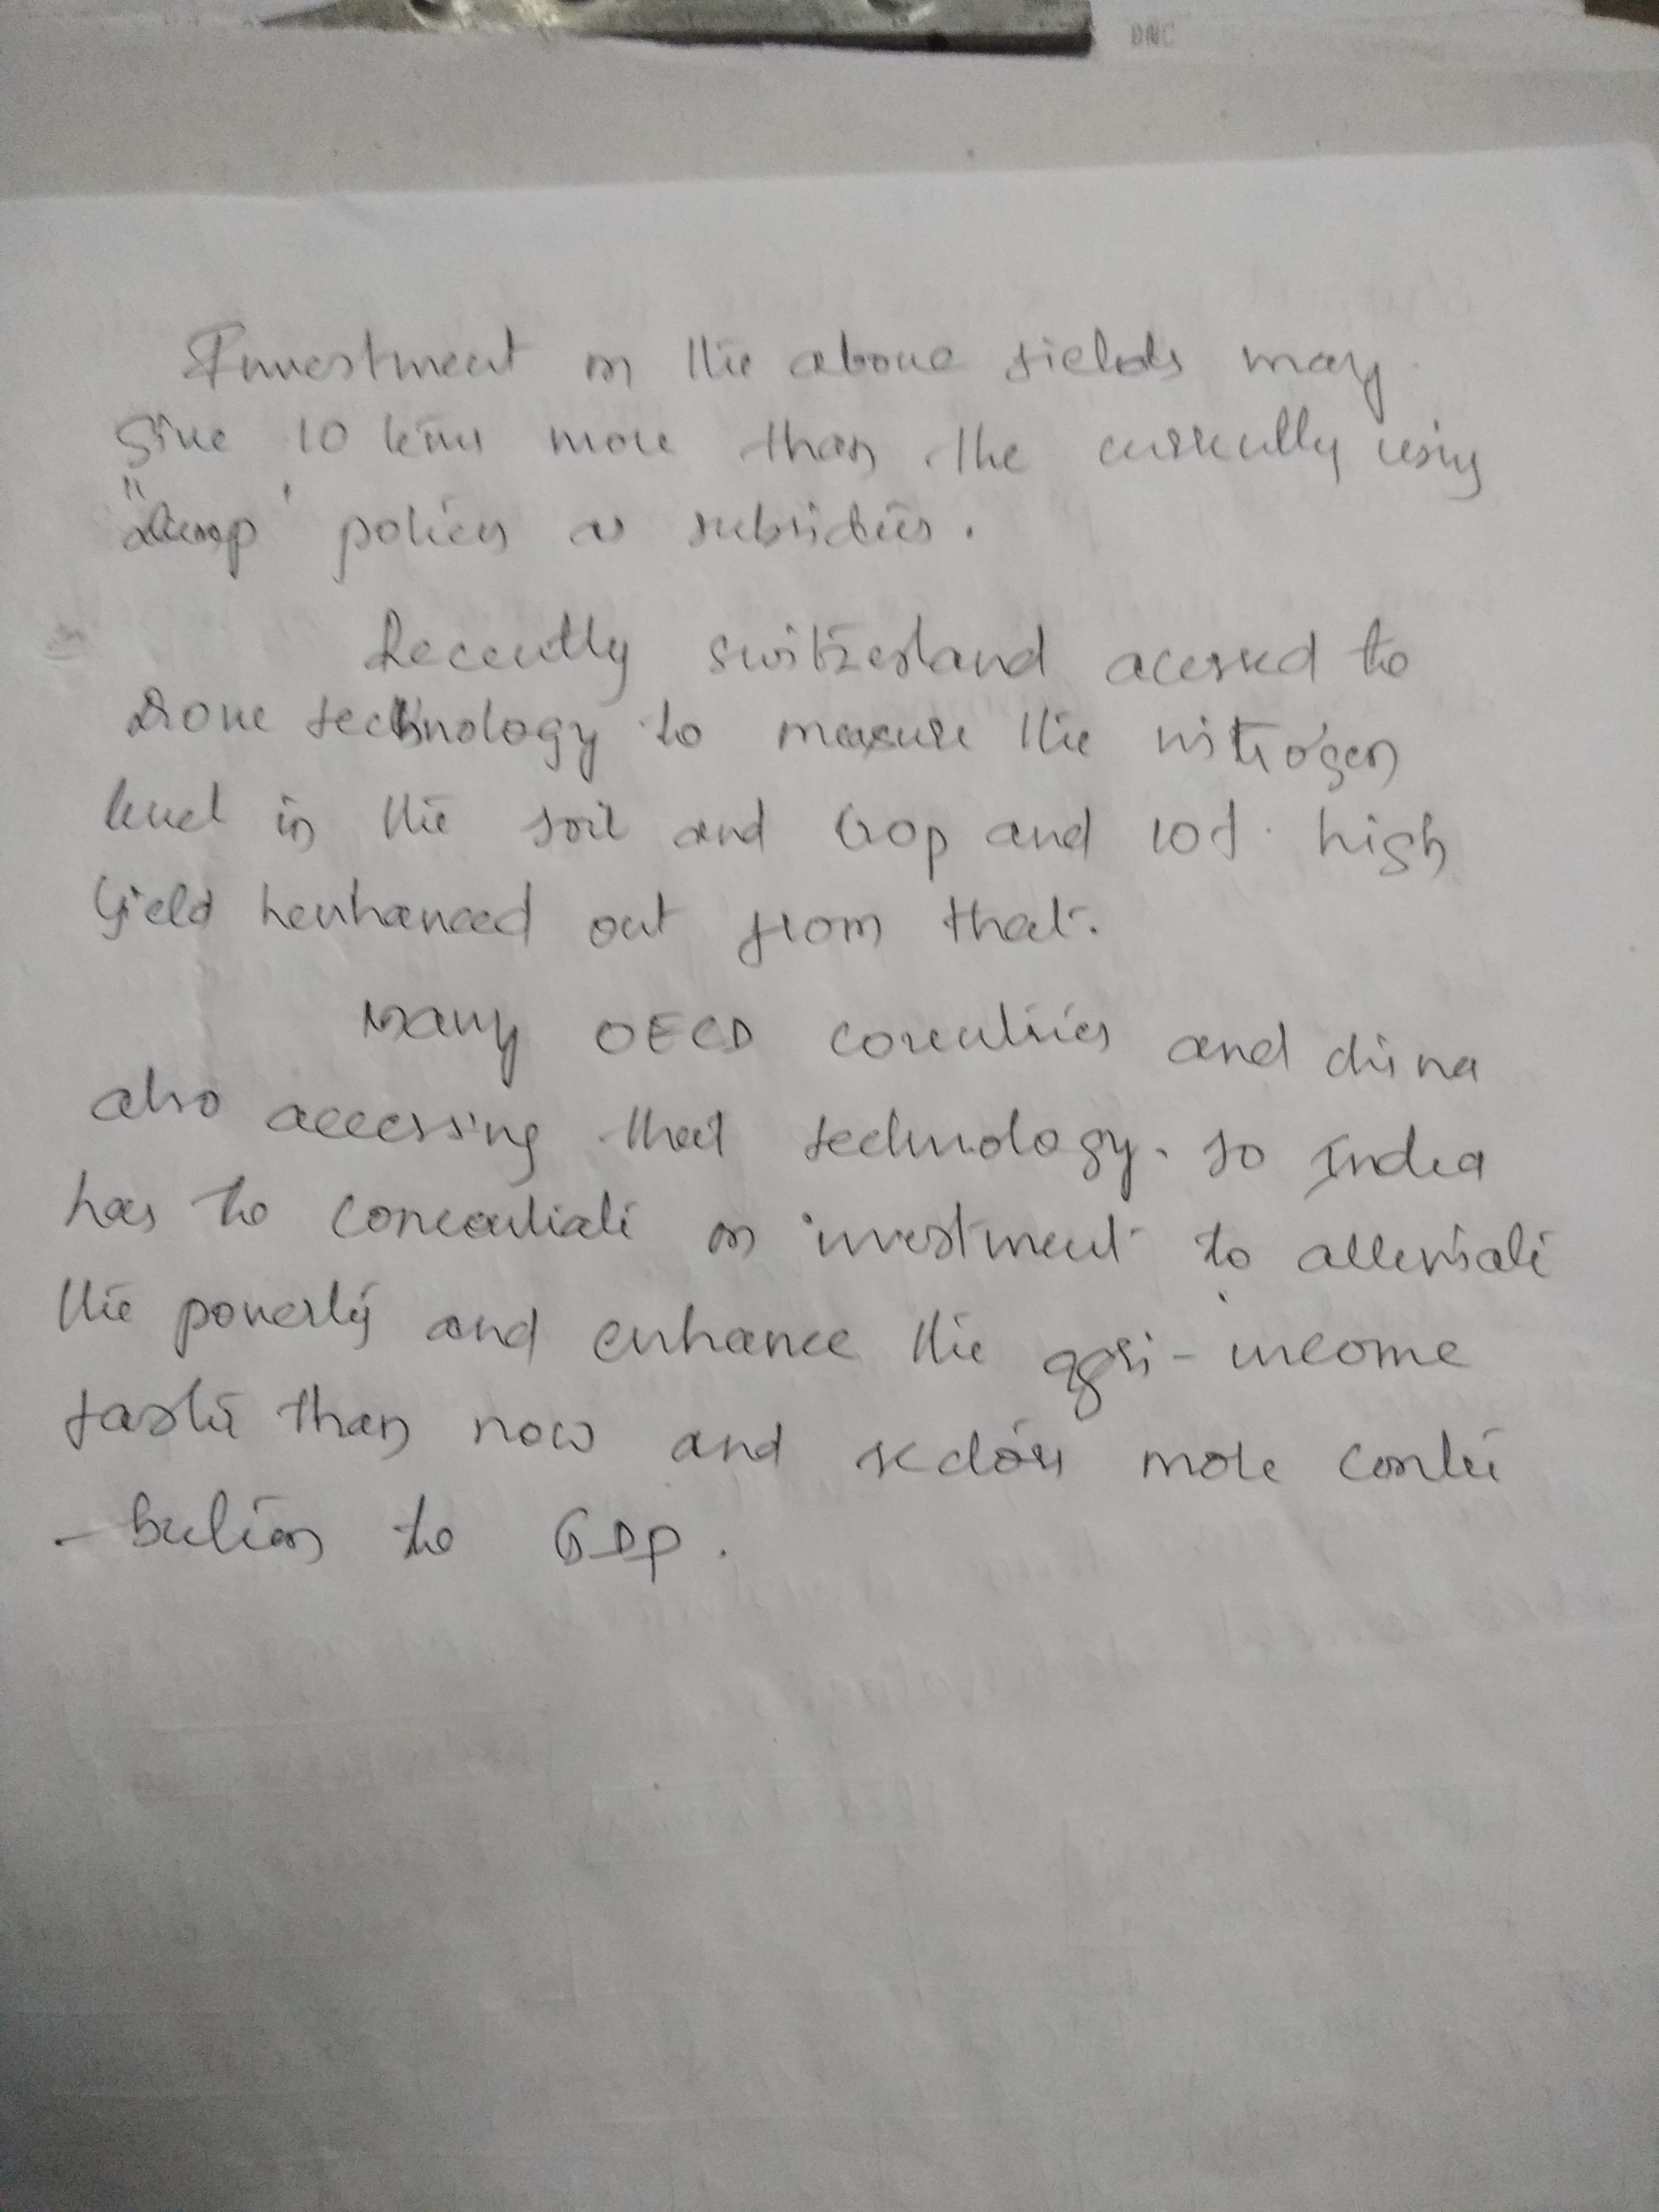 DNC
Investment on the above fields may
give 10 times more than the currently using
"dump' policy as subsidies.
Recently switzerland acessed to
drone technology to measure the nitrogen
level in the soil and crop and lot high
yield henhanced out from that.
Many OECD countries and china
also accessing that technology. so India
has to concentrate on investment to alleviate
the poverty and enhance the agri-income
faster than now and sectors more contri
-bution to GDP.